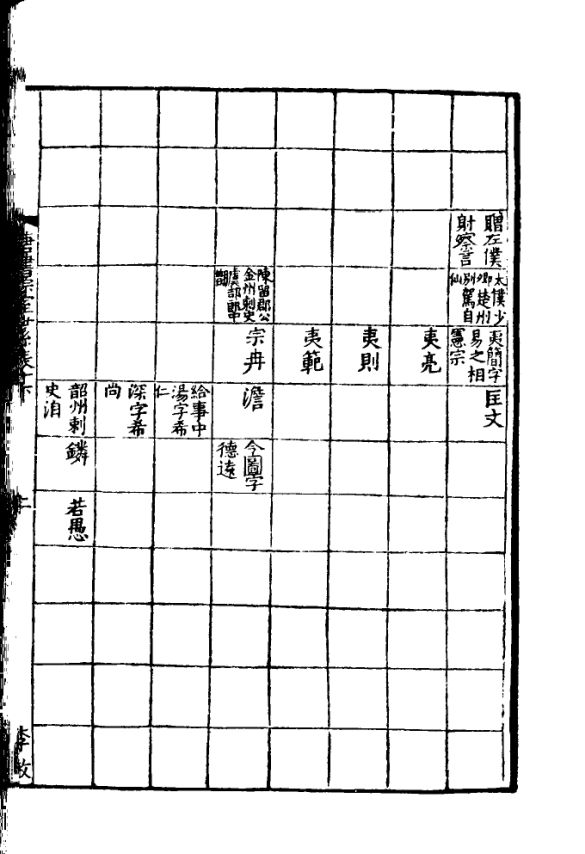 贈左僕
射察言
太僕少
卿楚州
別駕自
仙
夷簡字
易之相
憲宗
匡文
夷亮
夷則
夷範
陳留郡公
金州刺史
虞部郎中
宗冉
澹
今圖字
德遠
給事中
湯字希
仁
深字希
尚
韶州刺
史洎
鏻
若愚
唐書宗室世系表十下
二